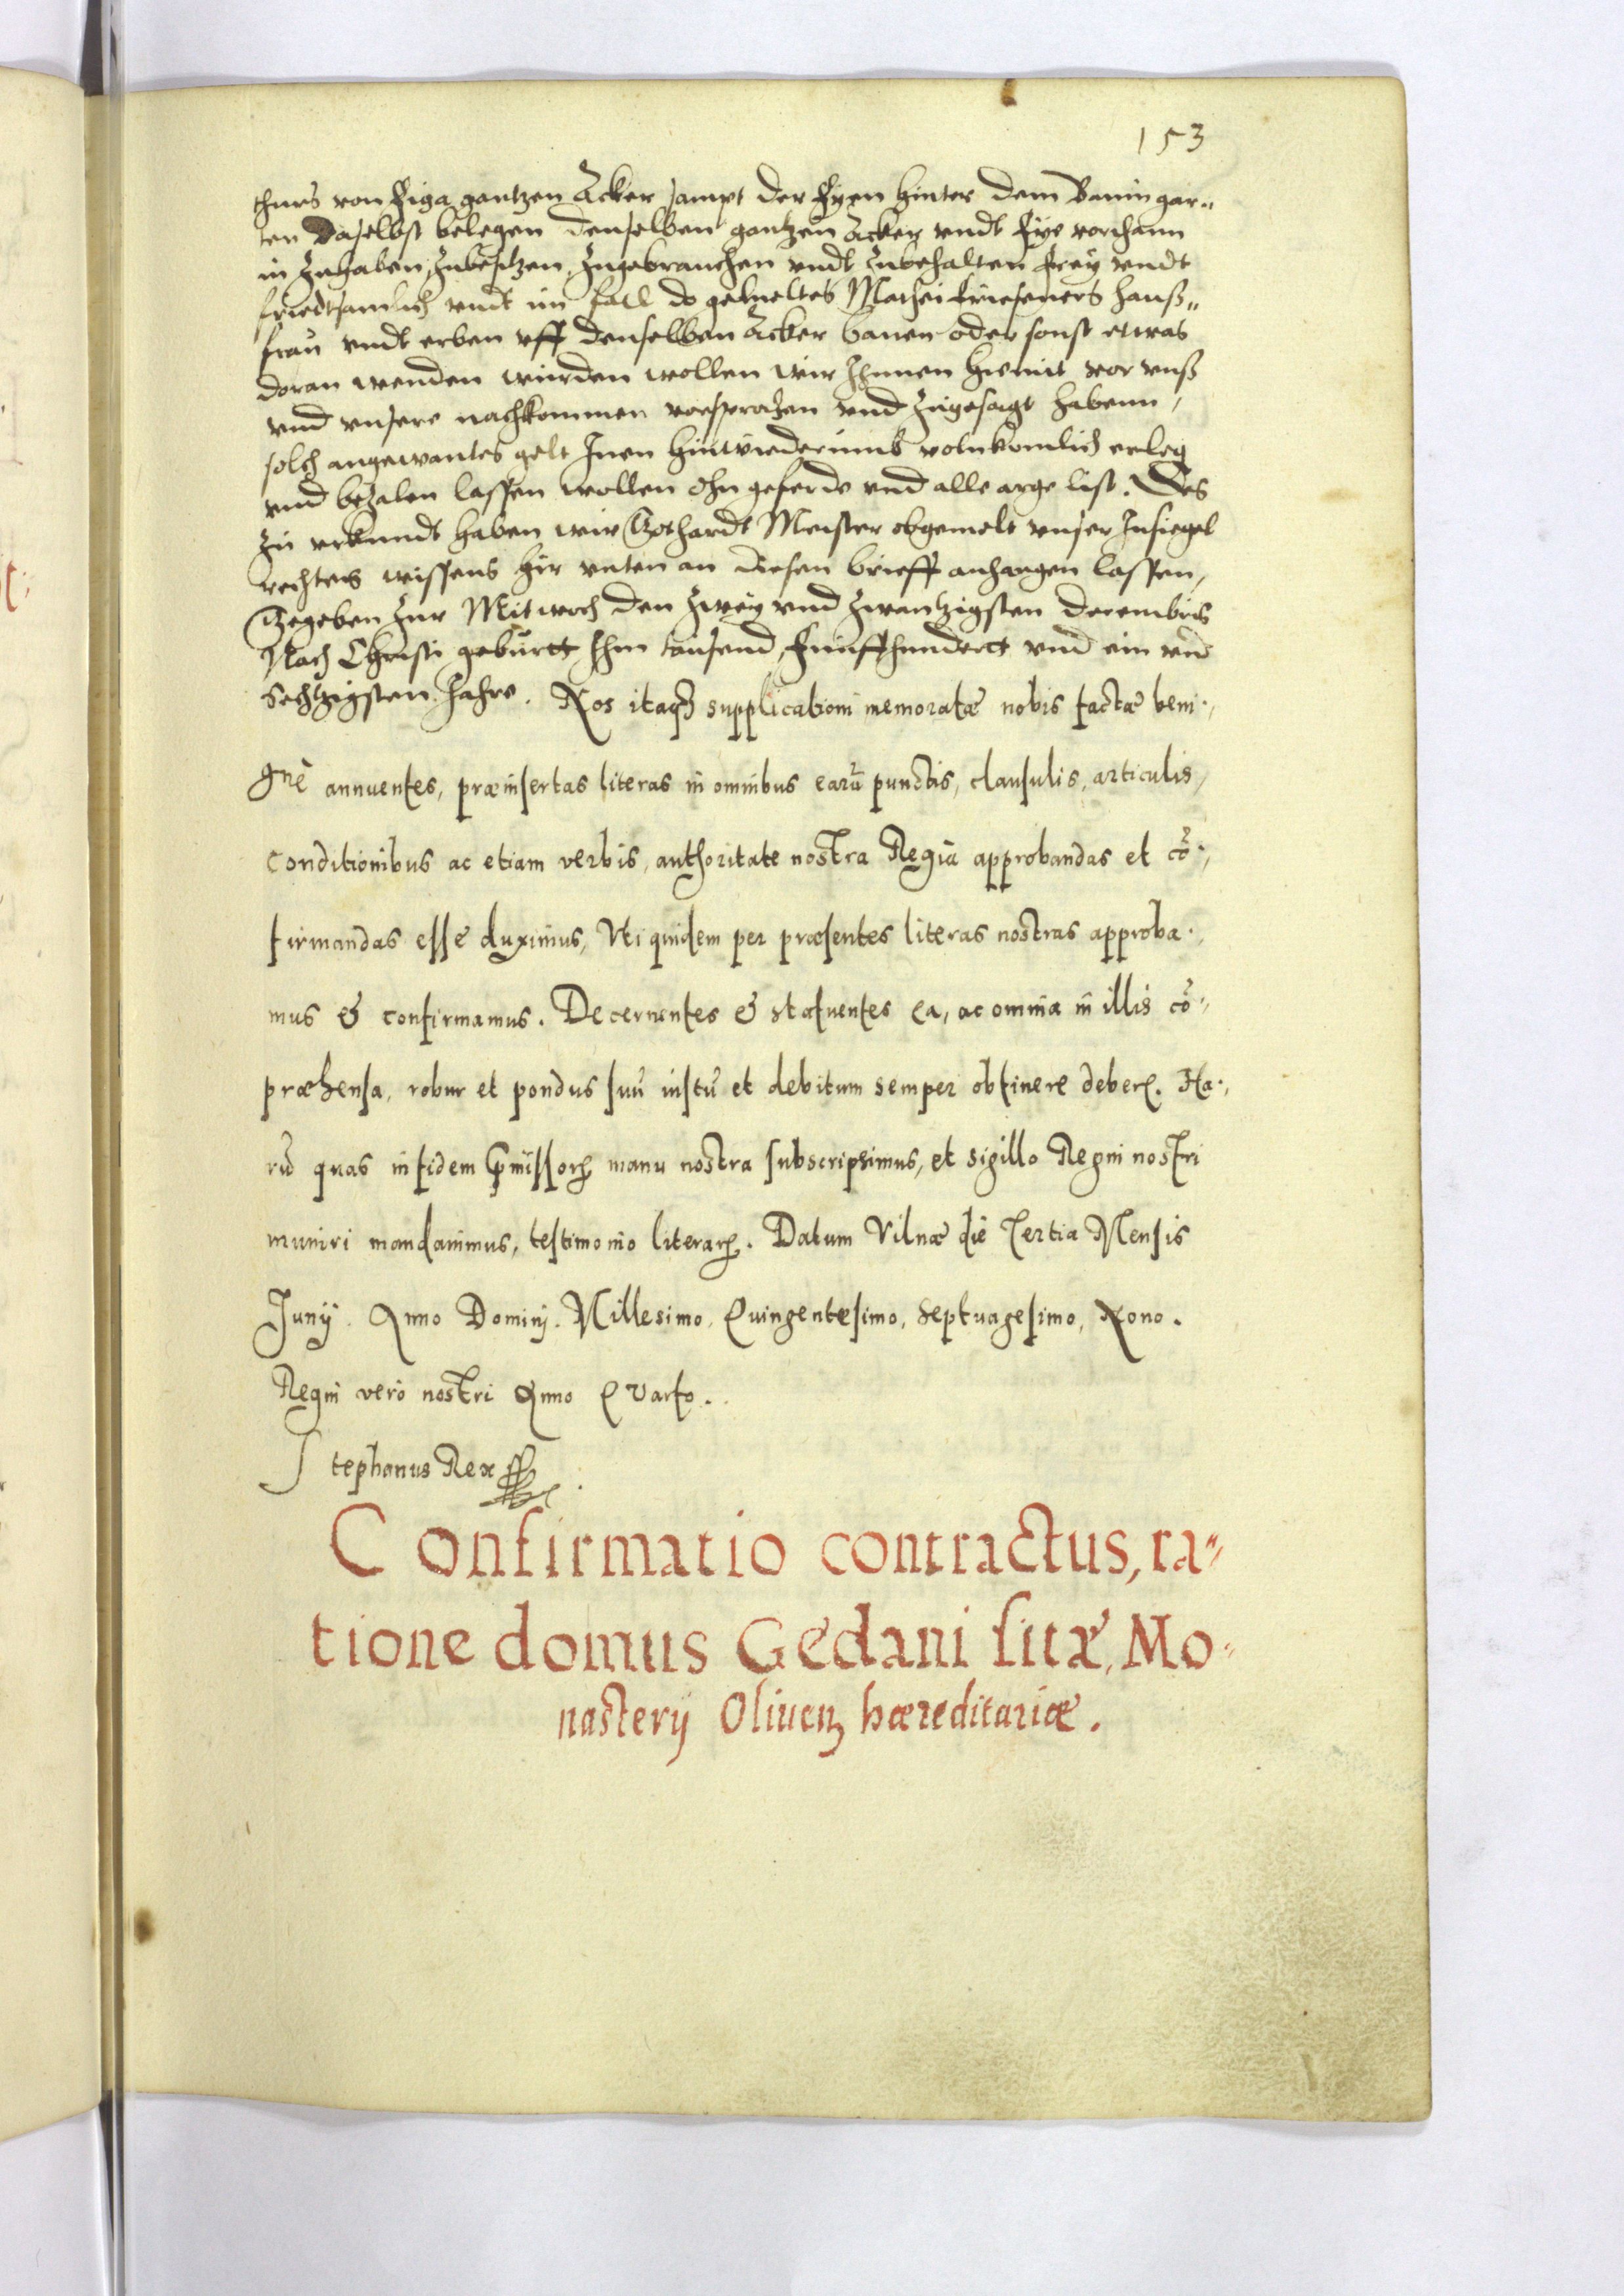 153
thurs von Riga gantzen Acker sampt der Eyen hinter dem Baumgar„
ten daselbst belegen denselben gantzen Acker vndt Eye vorthann
in Zuhaben, Zubesitzen, Zugebrauchen vndt Zubehalten frey vndt
friedtsamlich vndt im fall do gemeltes Mathei hauß„
frau vndt erben vff denselben Acker bauen oder sonst etwas
doran wenden würden wollen wir Ihnnen hiemit vor vnß
vnd vnsere nachkommen vorsprochen vnd Zugesagt habenn,
solch angewantes gelt Inen hinwiederumb volnkomlich erleg
vnd bezalen lassen wollen ohn geferde vnd alle arge list. Des
Zu vrkundt haben wir Gothardt Meister obgemelt vnser Insiegel
rechtens wissens hir vnten an diesen brieff anhangen lassen,
Gegeben Zur Mitwoch den Zwey vnd Zwantzigsten Decembris
Nach Christi geburtt Ihm tausend, Funffhundertt vnd ein vnd
Sechtzigsten Jahre. Nos itaq3 supplicationi memoratæ nobis factæ beni„
gnè annuentes, præinsertas literas in omnibus earũ punctis, clausulis, articulis,
conditionibus ac etiam verbis, authoritate nostra Regia approbandas et cõ„
firmandas esse duximus, Vti quidem per præsentes literas nostras approba„
mus & confirmamus. Decernentes & statuentes ea, ac omnia in illis cõ„
præhensa, robur et pondus suũ iustũ et debitum semper obtinere debere. Ha„
rũ quas in fidem p̱missorꝝ manu nostra subscripsimus, et sigillo Regni nostri
muniri mandauimus, testimonio literarꝝ. Datum Vilnæ die Tertia Mensis
Junij. Anno Dominj. Millesimo, Quingentesimo, Septuagesimo, Nono.
Regni verò nostri Anno Quarto.
Stephanus Rex
Confirmatio contractus, ra„
tione domus Gedani sitæ, Mo„
nasterij Oliuen̄ hæreditariæ.